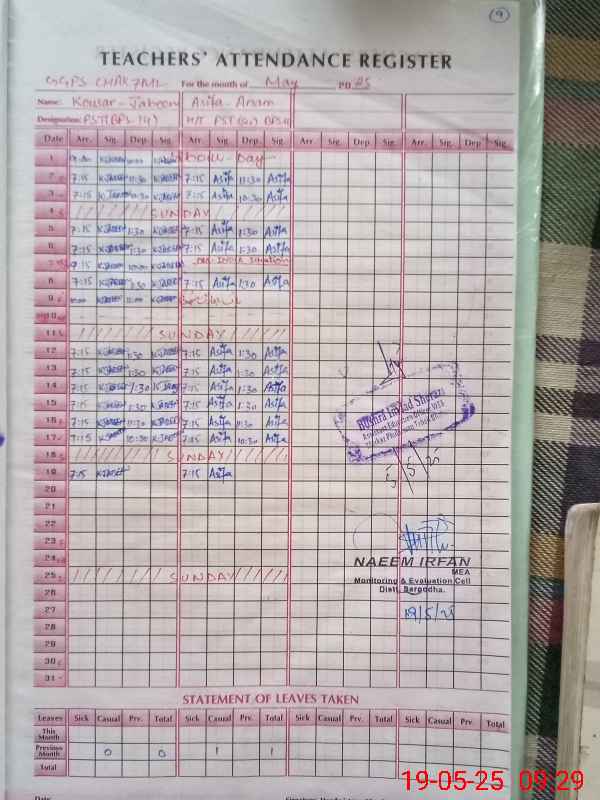 9
TEACHERS' ATTENDANCE REGISTER
GGPS CHAK 7ML For the month of May 2025
Name: Kousar-Jabeen Asifa-Anam
Designation: PST (BPS-14) H/T PST
Date Arr. Sig. Dep. Sig. Arr. Sig. Dep. Sig. Arr. Sig. Dep. Sig. Arr. Sig. Dep. Sig.
1 Labour-Day
2 7:15 K.Jabeen 11:30 K.Jabeen 7:15 Asifa 11:30 Asifa
3 7:15 K.Jabeen 10:30 K.Jabeen 7:15 Asifa 10:30 Asifa
4 SUNDAY
5 7:15 K.Jabeen 1:30 K.Jabeen 7:15 Asifa 1:30 Asifa
6 7:15 K.Jabeen 1:30 K.Jabeen 7:15 Asifa 1:30 Asifa
7 7:15 K.Jabeen K.Jabeen INDIA Situation
8 7:15 K.Jabeen 1:30 K.Jabeen 7:15 Asifa 1:30 Asifa
9 K.Jabeen K.Jabeen
10
11 SUNDAY
12 7:15 K.Jabeen 1:30 K.Jabeen 7:15 Asifa 1:30 Asifa
13 7:15 K.Jabeen 1:30 K.Jabeen 7:15 Asifa 1:30 Asifa
14 7:15 K.Jabeen 1:30 K.Jabeen 7:15 Asifa 1:30 Asifa
15 7:15 K.Jabeen 1:30 K.Jabeen 7:15 Asifa 1:30 Asifa
16 7:15 K.Jabeen 11:30 K.Jabeen 7:15 Asifa 11:30 Asifa
17 7:15 K.Jabeen 10:30 K.Jabeen 7:15 Asifa 10:30 Asifa
18 SUNDAY
19 7:15 K.Jabeen 7:15 Asifa
20
21
22
23
24
25 SUNDAY
26
27
28
29
30
31
Bushra Sherazi
5/5/25
NAEEM IRFAN
MEA
Monitoring & Evaluation Cell
Distt. Sargodha.
19/5/25
STATEMENT OF LEAVES TAKEN
Leaves Sick Casual Prv. Total Sick Casual Prv. Total Sick Casual Prv. Total Sick Casual Prv. Total
This Month
Previous Month 0 0 1 1
Total
19-05-25 09:29